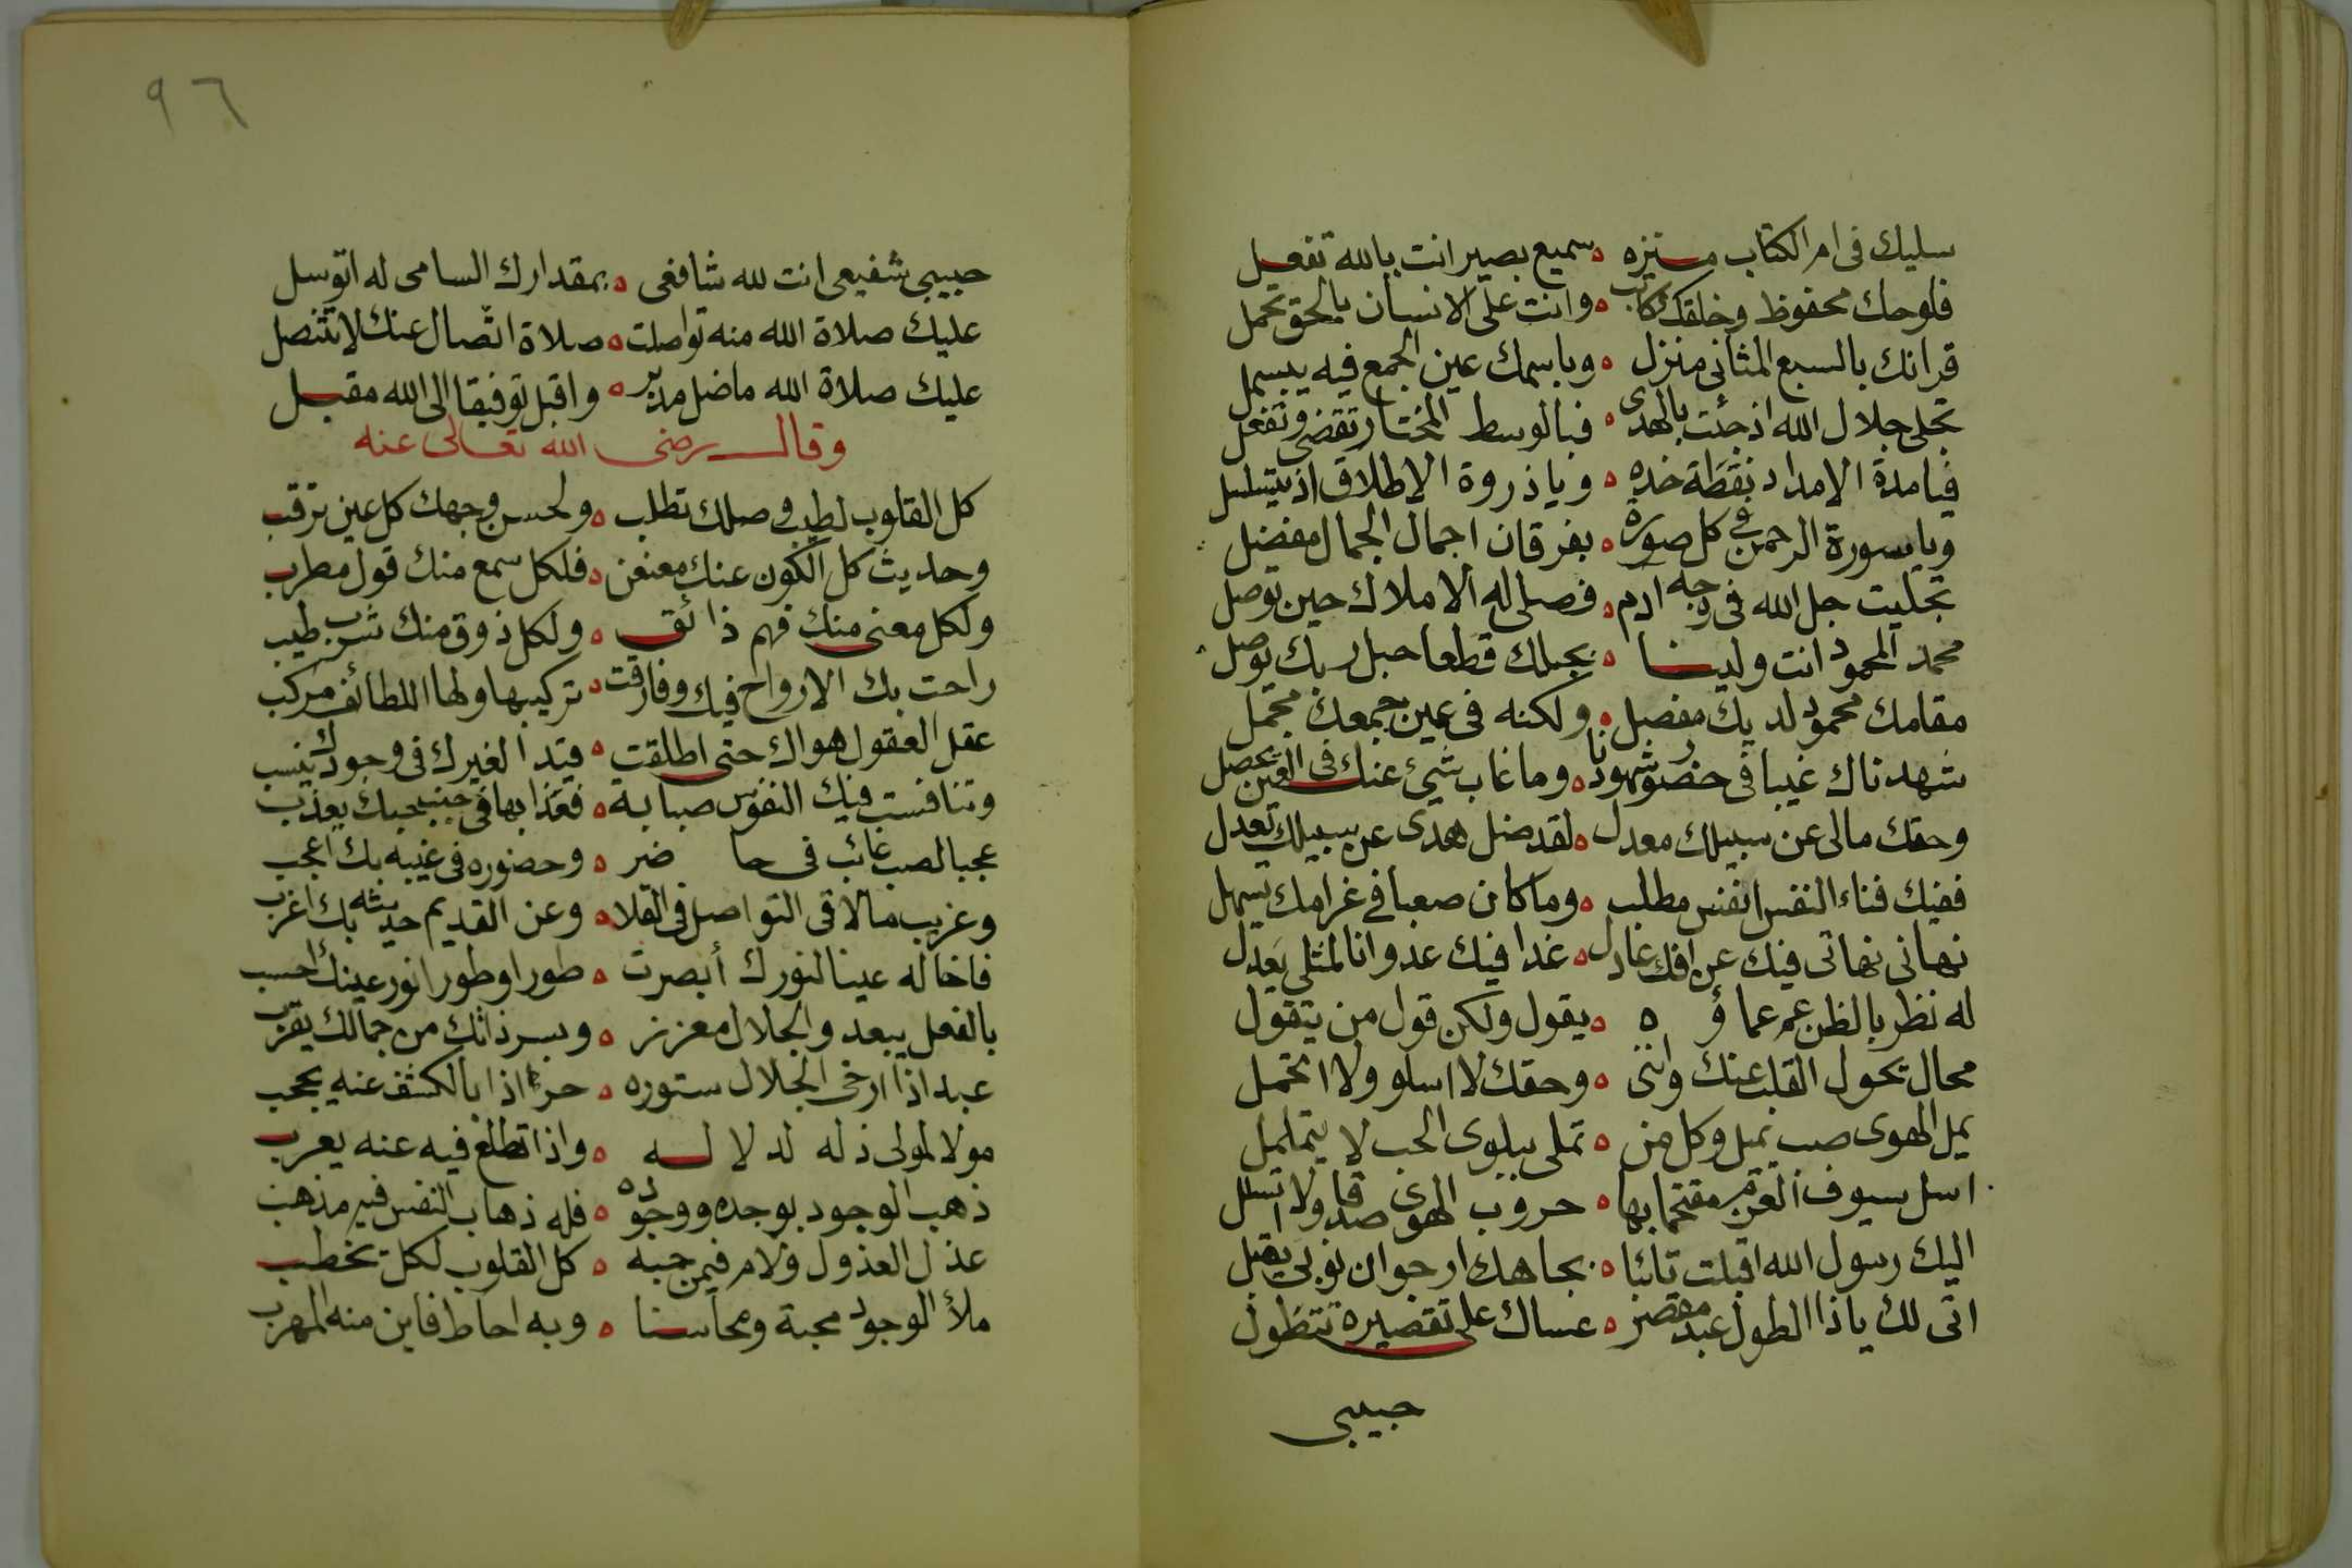 سليك فى ام الكتاب منزه ه سميع بصير انت بالله تفعل
فلوحك محفوظ وخلقك كاتب ه وانت على الانسان بالحق تحمل
قرانك بالسبع المثانى منزل ه وباسمك عين الجمع فيه يبسمل
تجلى جلال الله اذ جئت بالهدى ه فبالوسط المختار تقضى وتفعل
فيا مدة الامداد نقطة خده ه ويا ذروة الاطلاق اذ يتسلسل
ويا سورة الرحمن فى كل صورة ه بفرقان اجمال الجمال مفضل
تجليت جل الله فى وجه ادم ه فصلى له الاملاك حين توصل
محمد المحمود انت ولينا ه بحبلك قطعا حبل ربك نوصل
مقامك محمود لديك مفصل ه ولكنه فى عين جمعك مجمل
شهدناك غيبا فى حضور شهودنا ه وما غاب شيئ عنك فى العين يحصل
وحقك مالى عن سبيلك معدل ه لقد ضل هدى عن سبيلك يعدل
ففيك فناء النفس انفس مطلب ه وما كان صعبا فى غرامك يسهل
نهانى نهاتى فيك عن افك عادل ه غدا فيك عدوانا لمثلى يعدل
له نظر بالظن عم عماؤه ه يقول ولكن قول من يتقول
محال تحول القلب عنك وانثنى ه وحقك لا اسلو ولا اتحمل
يمل الهوى صب تميل وكل من ه تملى ببلوى الحب لا يتململ
اسل سيوف العزم مقتحما بها ه حروب الهوى صدقا ولا اتسلل
اليك رسول الله اقبلت تائبا ه بجاهك ارجو ان توبى يقبل
اتى لك ياذا الطول عبد مقصر ه عساك على تقصيره تتطول
حبيبى
٩٦
حبيبى شفيعى انت لله شافعى ه بمقدارك السامى له اتوسل
عليك صلاة الله منه تواصلت ه صلاة اتصال عنك لا تتنصل
عليك صلاة الله ما ضل مدبر ه واقبل توفيقا الى الله مقبل
وقال رضى الله تعالى عنه
كل القلوب لطيب وصلك تطلب ه ولحسن وجهك كل عين ترقب
وحديث كل الكون عنك معنعن ه فلكل سمع منك قول مطرب
ولكل معنى منك فهم ذائق ه ولكل ذوق منك شرب طيب
راحت بك الارواح فيك وفارقت ه تركيبها ولها اللطائف مركب
عقل العقول هواك حتى اطلقت ه قيدا لغيرك فى وجودك ينسب
وتنافست فيك النفوس صبابة ه فعذابها فى جنب حبك يعذب
عجبا لصب غائب فى حاضر ه وحضوره فى غيبه بك اعجب
وغريب مالاقى التواصل فى القلا ه وعن القديم حديثه بك اغرب
فاخاله عينا لنورك أبصرت ه طورا وطورا نور عينك احسب
بالفعل يبعد والجلال معزز ه وبسر ذاتك من جمالك يقرب
عبد اذا ارخى الجلال ستوره ه حرا اذا بالكشف عنه يحجب
مولا لمولى ذله لدلاله ه واذا تطلع فيه عنه يعرب
ذهب الوجود بوجده ووجوده ه فله ذهاب النفس فيه مذهب
عذل العذول ولام فيمن حبه ه كل القلوب لكل تخطب
ملأ الوجود محبة ومحاسنا ه وبه احاط فاين منه المهرب